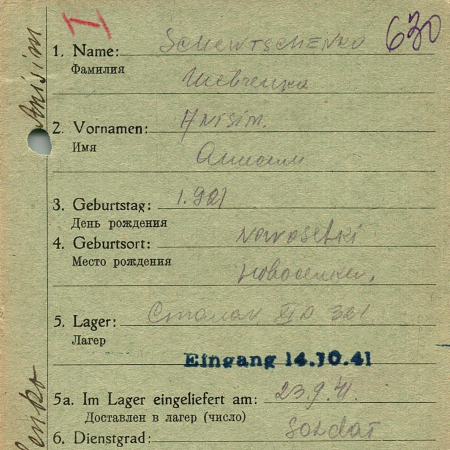 I
630
1. Name: SCHEWTSCHENKO
Фамилия Шевченко
2. Vornamen: Anisim.
Имя Анисим
3. Geburtstag: 1.901
День рождения
4. Geburtsort: Nowoselki
Место рождения Новоселки,
5. Lager: Сталаг XI D 321
Лагер
Eingang 14.10.41
5a. Im Lager eingeliefert am: 23.9.41.
Доставлен в лагер (число)
6. Dienstgrad: Soldat
Anisim
enko